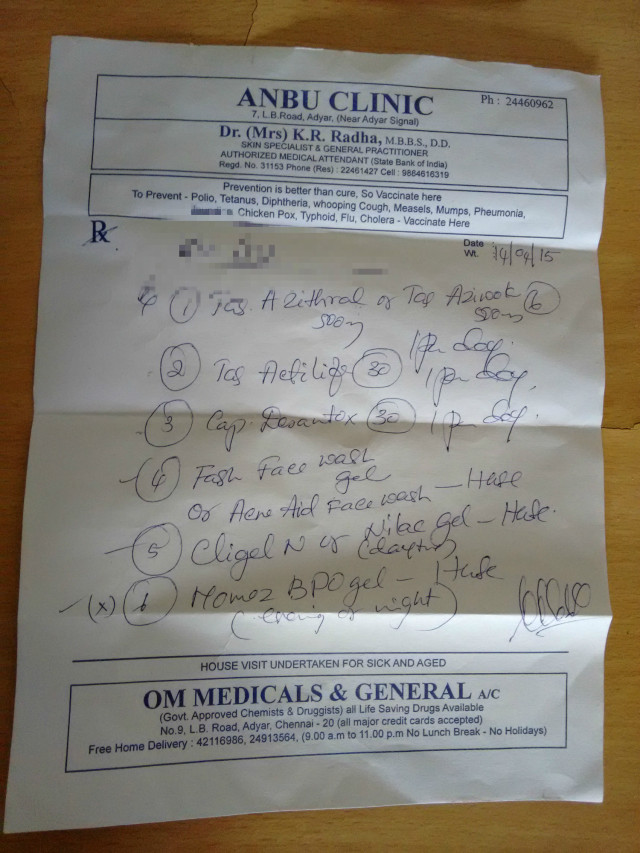 ANBU CLINIC
Ph : 24460962
7, L.B.Road, Adyar, (Near Adyar Signal)
Dr. (Mrs) K.R. Radha, M.B.B.S., D.D.
SKIN SPECIALIST & GENERAL PRACTITIONER
AUTHORIZED MEDICAL ATTENDANT (State Bank of India)
Regd. No. 31153 Phone (Res) : 22461427 Cell : 9884616319
Prevention is better than cure, So Vaccinate here
To Prevent - Polio, Tetanus, Diphtheria, whooping Cough, Measels, Mumps, Pheumonia,
Chicken Pox, Typhoid, Flu, Cholera - Vaccinate Here
Rx
Date 14/04/15
Wt.
1 Tab. Azithral or Tab 6
500mg 500mg
1 per day.
2 Tab 30 1 per day.
3 Cap. 30 1 per day.
4 Fash Face wash
gel
or Acne Aid Face wash
5 Cligel N or Nilac gel
(daytime)
(x) 6 Momoz BPO gel
(evening or night)
HOUSE VISIT UNDERTAKEN FOR SICK AND AGED
OM MEDICALS & GENERAL A/C
(Govt. Approved Chemists & Druggists) all Life Saving Drugs Available
No.9, L.B. Road, Adyar, Chennai - 20 (all major credit cards accepted)
Free Home Delivery : 42116986, 24913564, (9.00 a.m to 11.00 p.m No Lunch Break - No Holidays)